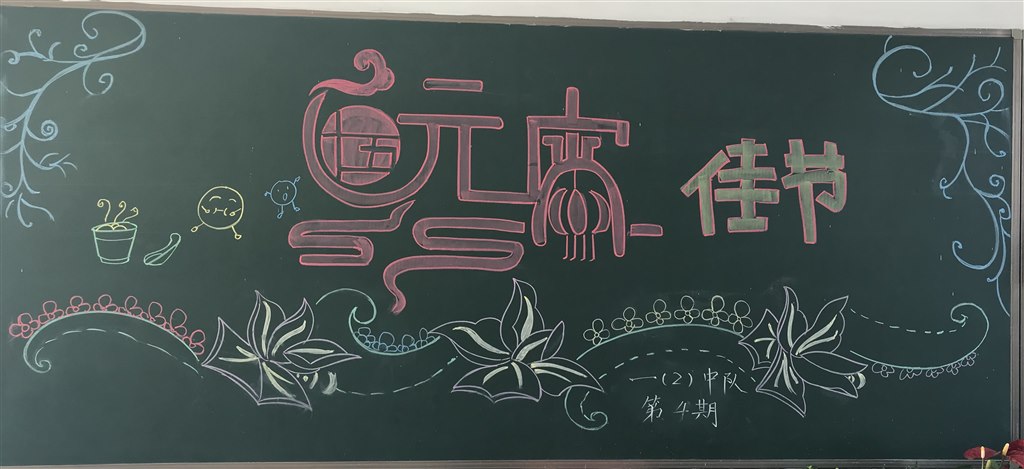 元宵佳节
一(2)中队
第4期